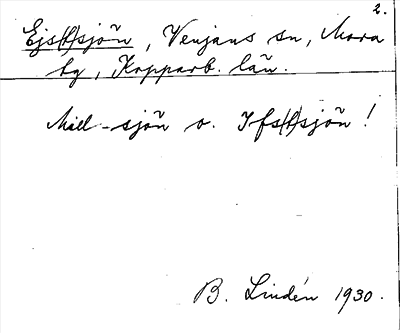 2.
Ejs(t)sjön, Venjans sn, Mora
hg, Kopparb. län.
Mäll-sjön o. Ifs(t)sjön!
B. Lindén 1930.